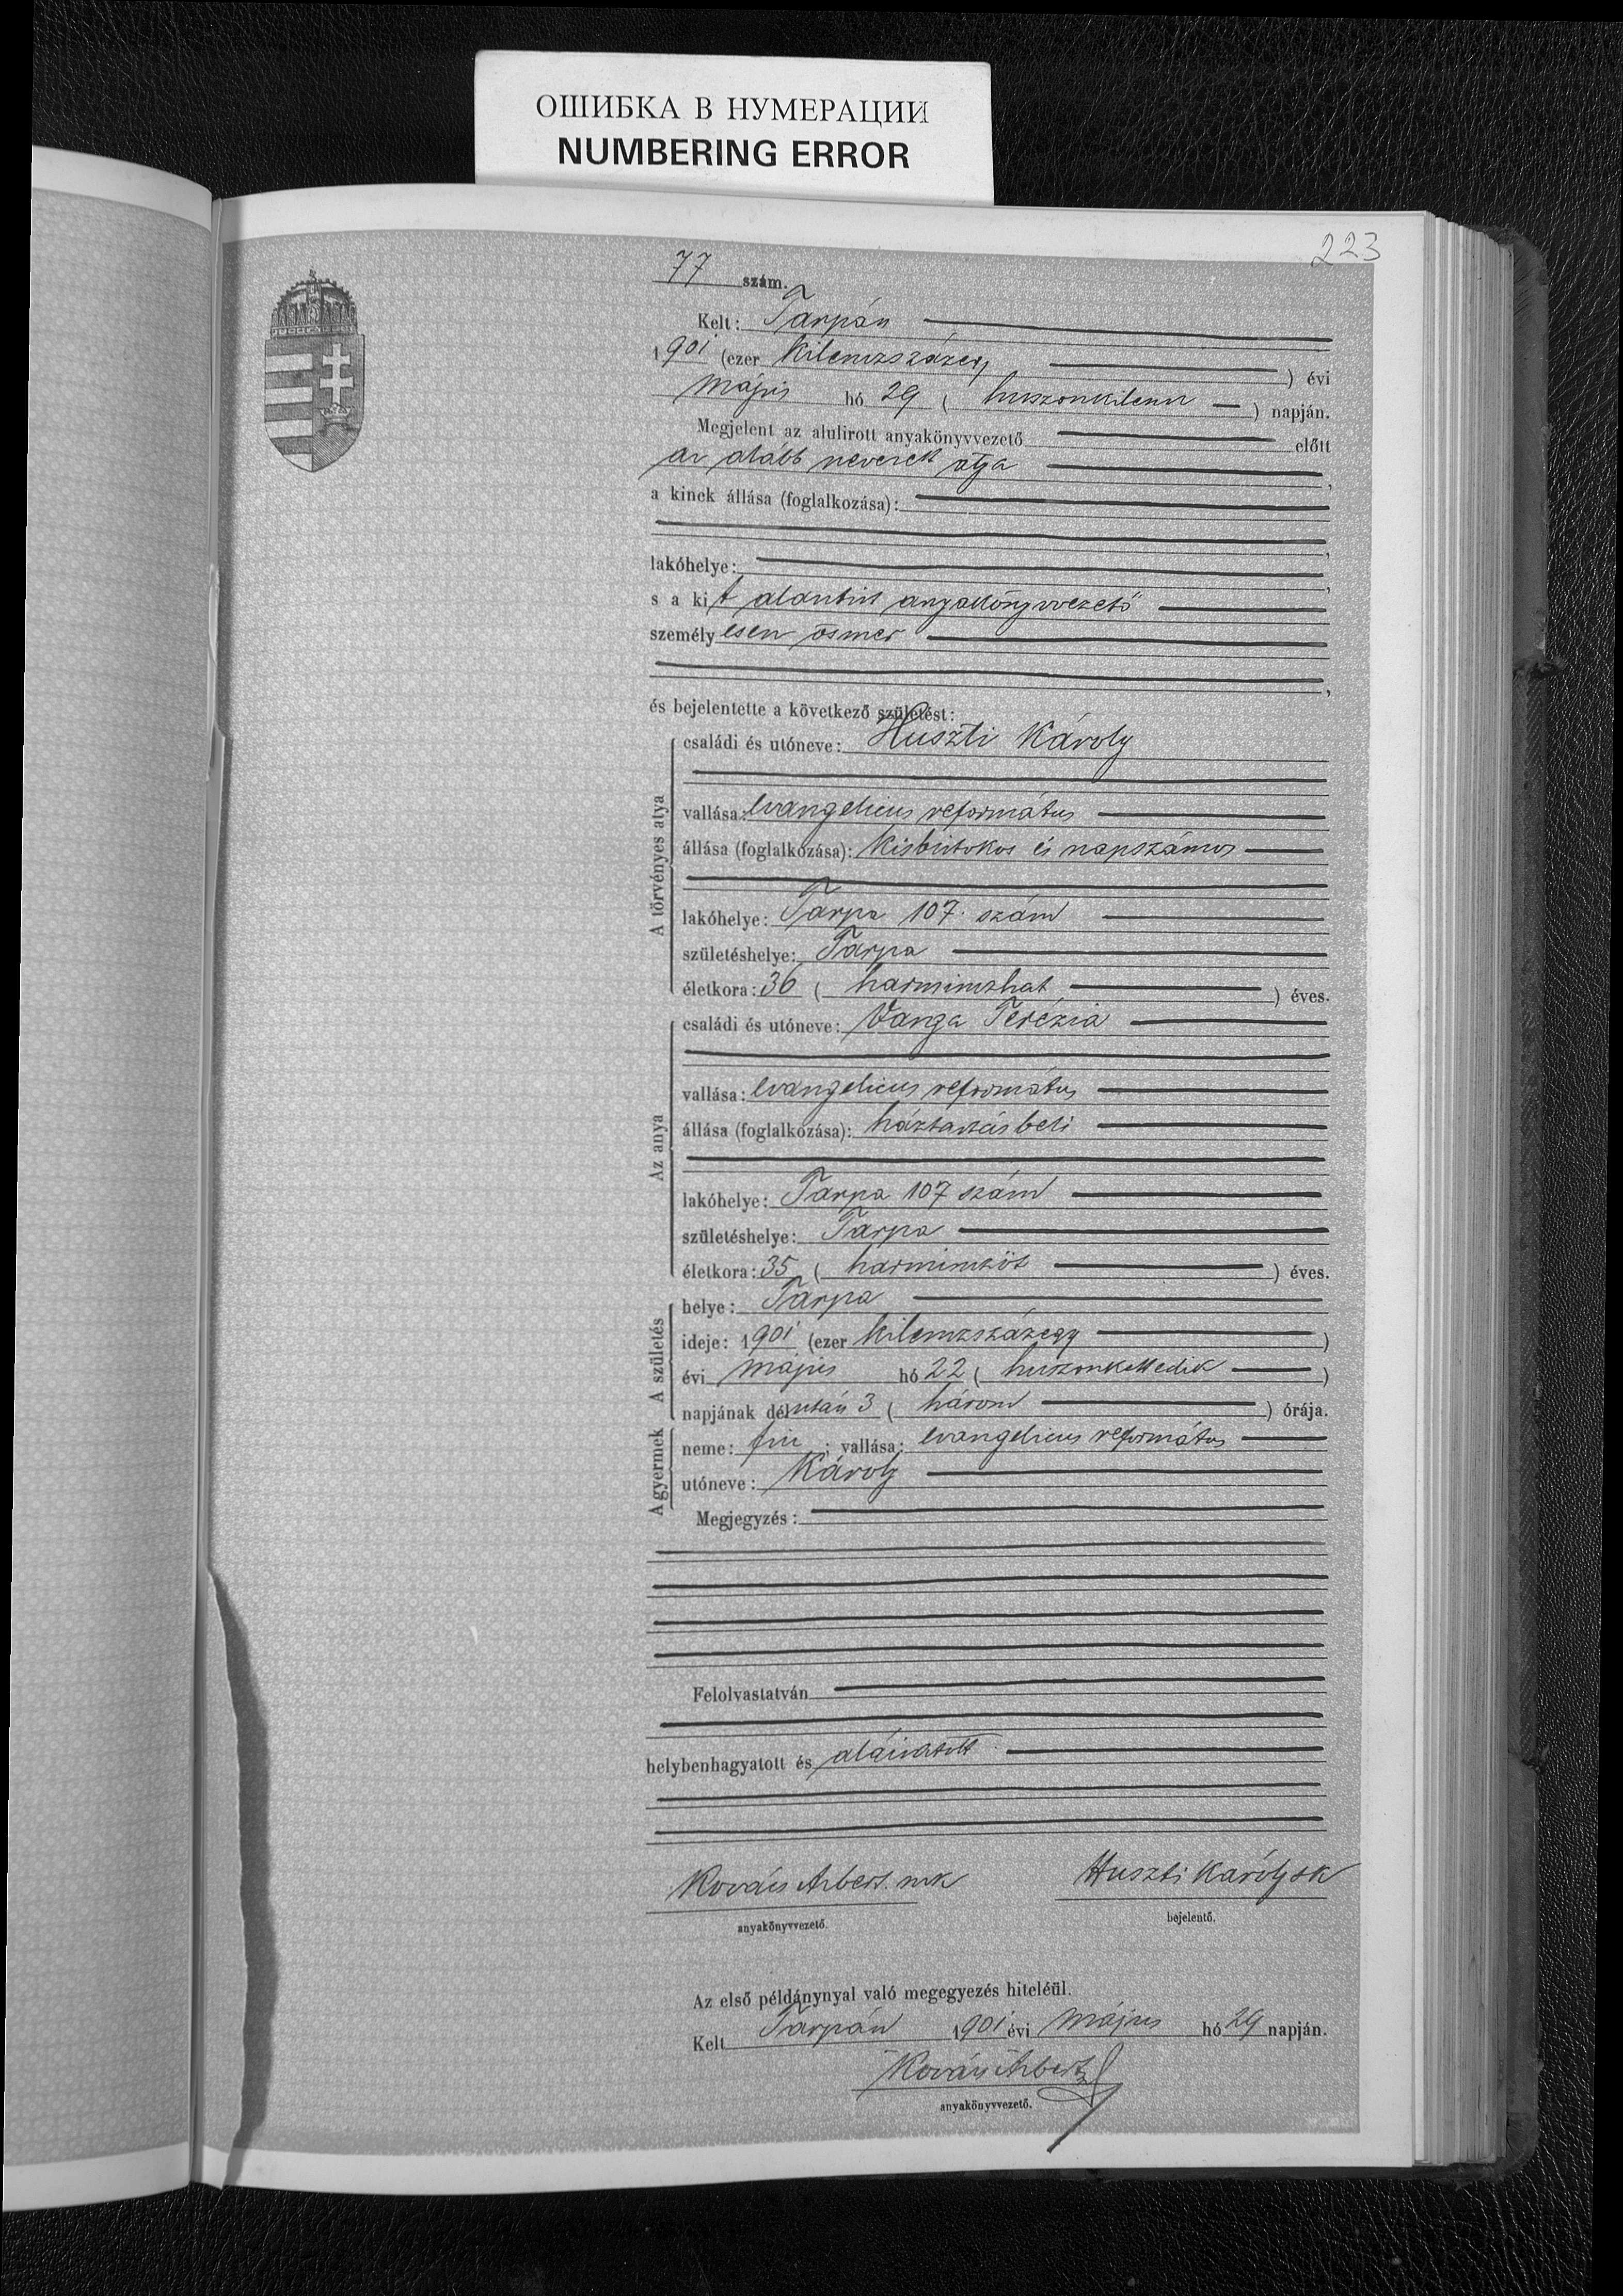 ОШИБКА В НУМЕРАЦИИ
NUMBERING ERROR
223
77 szám.
Kelt: Tarpán
1901 (ezer kilenczszázegy) évi
május hó 29 (huszonkilencz) napján.
Megjelent az alulirott anyakönyvvezető előtt
az alább nevezett atya,
a kinek állása (foglalkozása):
,
lakóhelye: ,
s a kit alantirt anyakönyvvezető
személyesen ösmer
,
és bejelentette a következő születést:
A törvényes atya
családi és utóneve: Huszti Károly
vallása: evangelicus református
állása (foglalkozása): kisbirtokos és napszámos
lakóhelye: Tarpa 107. szám
születéshelye: Tarpa
életkora: 36 (harminczhat) éves.
Az anya
családi és utóneve: Varga Terézia
vallása: evangelicus református
állása (foglalkozása): háztartásbeli
lakóhelye: Tarpa 107 szám
születéshelye: Tarpa
életkora: 35 (harminczöt) éves.
A születés
helye: Tarpa
ideje: 1901 (ezer kilenczszázegy)
évi május hó 22 (huszonkettedik)
napjának délután 3 (három) órája.
A gyermek
neme: fiu; vallása: evangelicus református
utóneve: Károly
Megjegyzés:
Felolvastatván
helybenhagyatott és aláiratott
Kovács Albert mk Huszti Károly sk
anyakönyvvezető. bejelentő.
Az első példánynyal való megegyezés hiteléül.
Kelt Tarpán 1901 évi május hó 29 napján.
Kovács Albert
anyakönyvvezető.